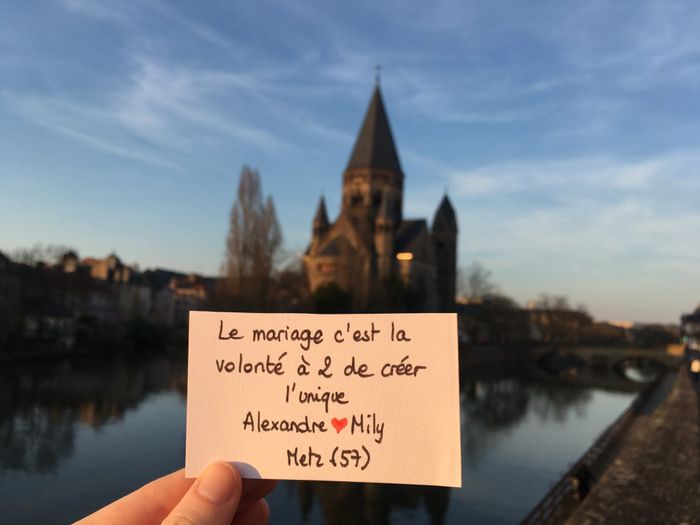 Le mariage c'est la
volonté à 2 de créer
l'unique
Alexandre ❤ Mily
Metz (57)